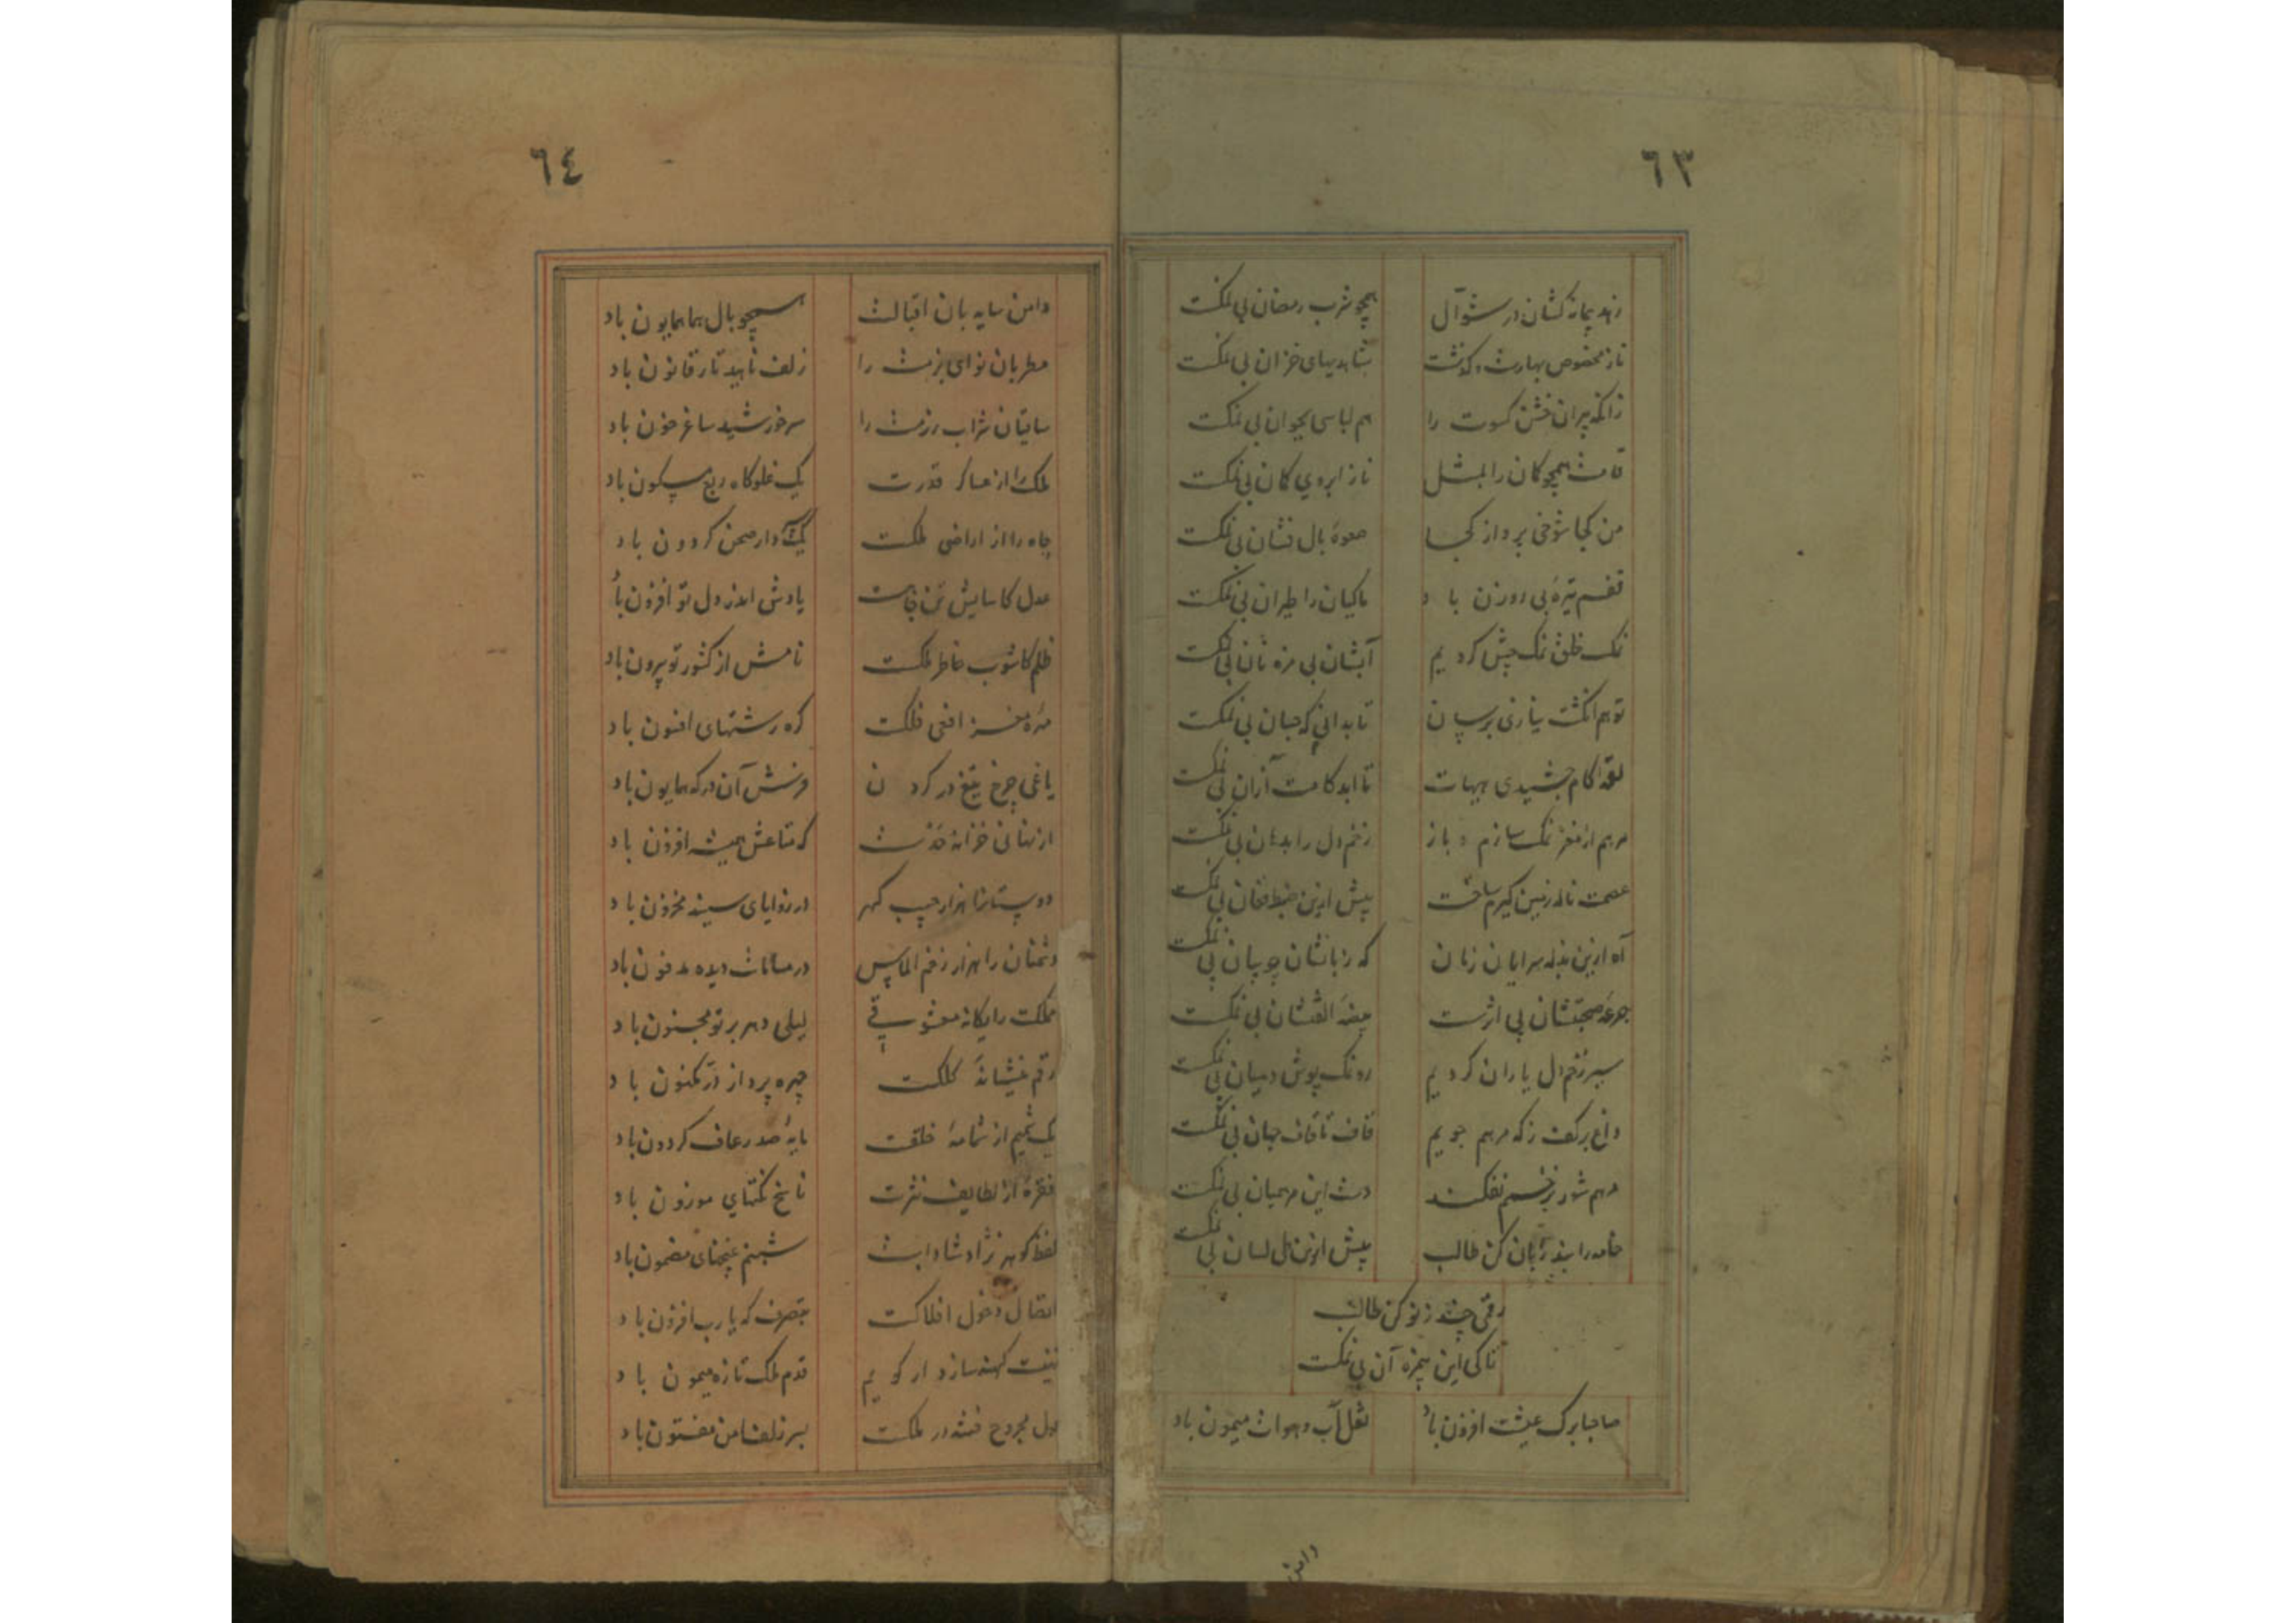 ٦٣
زهد پیمانه کشان در شوال همچو شرب رمضان بی نمکست
ناز مخصوص بهارست و گذشت شاهدیهای خزان بی نمکست
زانکه پیران خشن کسوت را هم لباسی بجوان بی نمکست
قامت همچو کمان را بمثل ناز ابروی کمان بی نمکست
من کجا شوخی پرواز کجا صعوهٔ بال فشان بی نمکست
قفس تیرهٔ بی روزن باد ماکیان را طیران بی نمکست
نمک خلق نمک چش کردیم آبشان بی مزه نان بی نمکست
تو هم انگشت بیا زن برسان تا بدانی که جهان بی نمکست
لقمه کام چشیدی هیهات تا ابد کامت از آن بی نمکست
مرهم از مغز نمک سازم و باز زخم دل را بدهان بی نمکست
عصمت ناله زمین گیرم ساخت بیش ازین ضبط فغان بی نمکست
آه ازین بذله سرایان زنان که زبانشان چو بیان بی نمکست
جرعهٔ صحبتشان بی اثرست بیضهٔ الفتشان بی نمکست
سیر زخم دل یاران کردیم رو نمک پوش و میان بی نمکست
داغ بر کف ز که مرهم جویم قاف تا قاف جهان بی نمکست
مرهم شور بزخمم نفکند دست این مرهمیان بی نمکست
خامه را بند زبان کن طالب بیش ازین لال لسان بی نمکست
رقمی چند ز نو کن طالب
تا کی این بیمزه آن بی نمکست
صاحبا برگ عیشت افزون باد نقل آب و هوات میمون باد
دامن
٦٤
دامن سایه بان اقبالت همچو بال هما همایون باد
مطربان نوای بزمت را زلف ناهید تار قانون باد
ساقیان شراب رزمت را سر خورشید ساغر خون باد
ملک را از عساکر قدرت یک غلو کاه ربع مسکون باد
جاه را از اراضی ملکت یک دار صحن گردون باد
عدل کاسایش تن و جانست یادش اندر دل تو افزون باد
ظلم کاشوب خاطر ملکست نامش از کشور تو بیرون باد
مهرهٔ مغز افعی فلکت گره رشتهای افسون باد
یاغی چرخ تیغ در گردن فرش آن درگه همایون باد
از نهانی خزانهٔ که متاعش همیشه افزون باد
دوستانرا هزار جیب گهر در زوایای سینه مخزون باد
دشمنان را هزار زخم الماس در مسامات دیده مدفون باد
مملکت را یگانه معشوقی لیلی دهر بر تو مجنون باد
رقم منشیانهٔ کلکت چهره پرداز در مکنون باد
یک شمیم از شمامهٔ خلقت مایهٔ صد رعاف گردون باد
فقرهٔ از لطایف نثرت ناسخ نکتهای موزون باد
لفظ گوهر نژاد شادابت شبنم غنچهای مضمون باد
اتصال دخول افلاکت بتصرف که یارب افزون باد
تهنیت کهنه سازد ار گویم قدم ملک تازه میمون باد
دل مجروح فتنه در ملکت بسر زلف امن مفتون باد